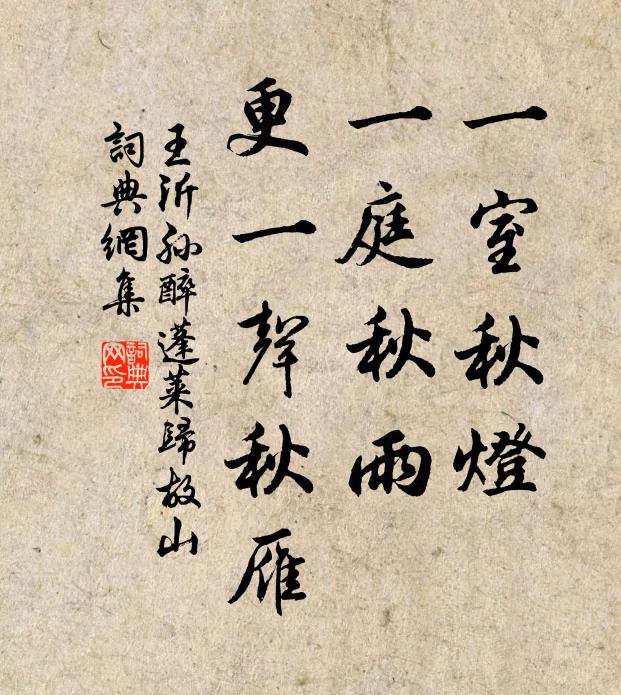 一室秋燈
一庭秋雨
更一聲秋雁
王沂孫醉蓬萊歸故山
詞典網集
詞典
网印